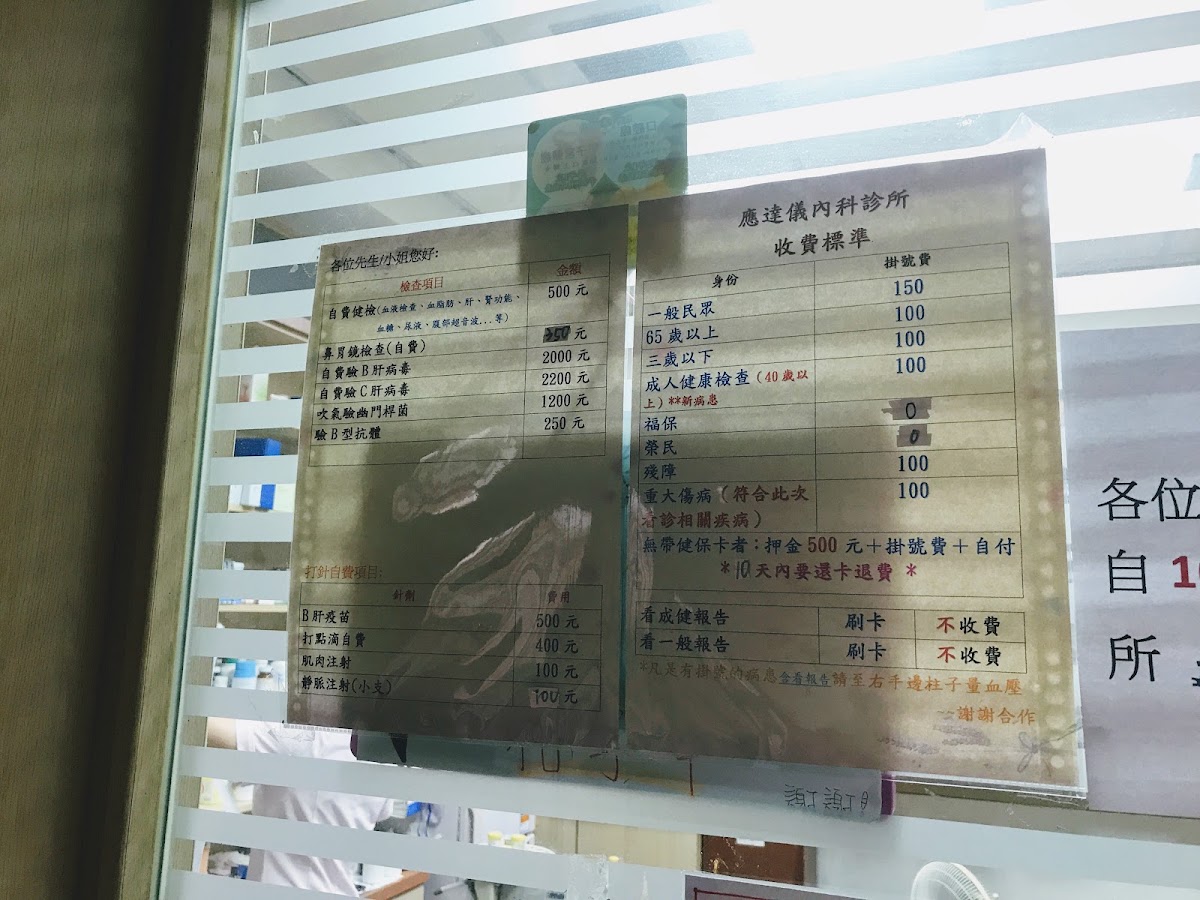 各位先生/小姐您好:
檢查項目 金額
自費健檢(血液檢查、血脂肪、肝、腎功能、 500 元
血糖、尿液、腹部超音波...等)
鼻胃鏡檢查(自費) 元
自費驗B肝病毒 2000 元
自費驗C肝病毒 2200 元
吹氣驗幽門桿菌 1200 元
驗B型抗體 250 元
打針自費項目:
針劑 費用
B肝疫苗 500 元
打點滴自費 400 元
肌肉注射 100 元
靜脈注射(小支) 100 元
應達儀內科診所
收費標準
身份 掛號費
一般民眾 150
65歲以上 100
三歲以下 100
成人健康檢查(40歲以 100
上)**新病患
福保 0
榮民 0
殘障 100
重大傷病(符合此次 100
看診相關疾病)
無帶健保卡者:押金500 元+掛號費+自付
*10天內要還卡退費 *
看成健報告 刷卡 不收費
看一般報告 刷卡 不收費
*凡是有掛號的病患含看報告請至右手邊柱子量血壓
~~謝謝合作
各位
自
所
謝謝